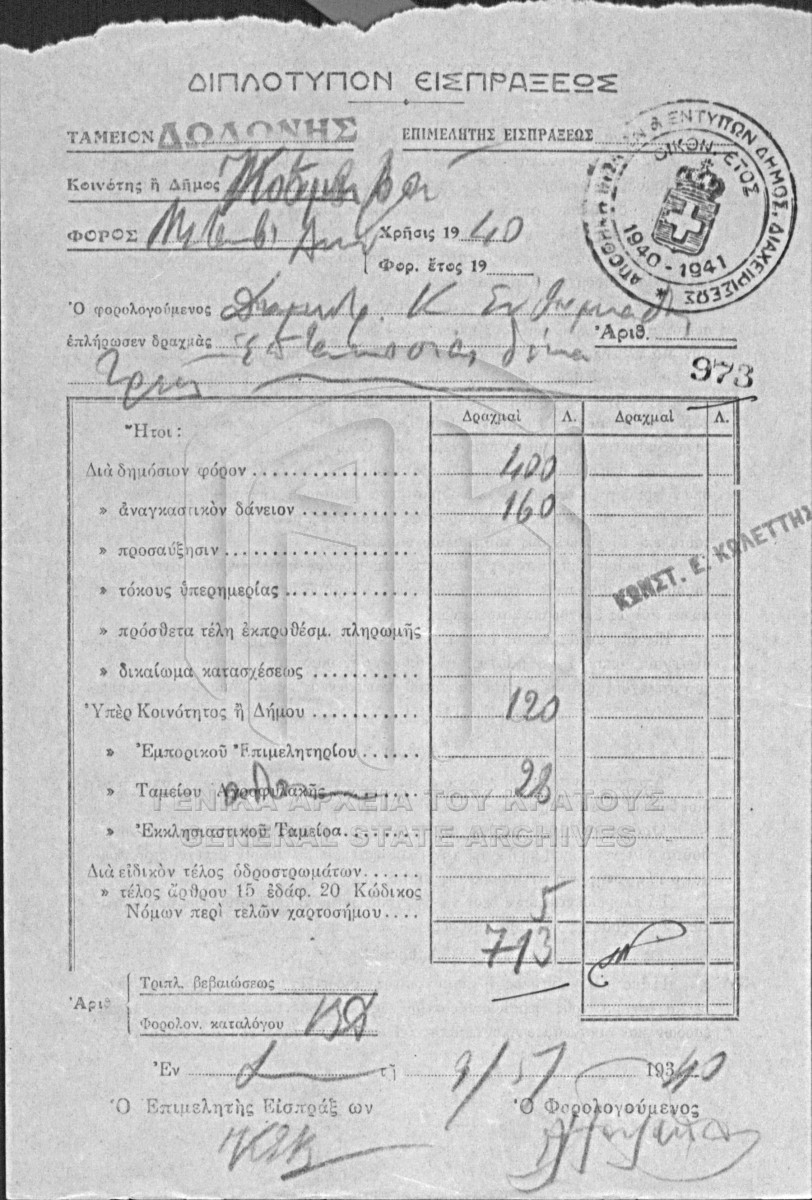 ΔΙΠΛΟΤΥΠΟΝ ΕΙΣΠΡΑΞΕΩΣ
ΤΑΜΕΙΟΝ ΔΩΔΩΝΗΣ
ΕΠΙΜΕΛΗΤΗΣ ΕΙΣΠΡΑΞΕΩΣ
& ΕΝΤΥΠΩΝ ΔΗΜΟΣ. ΔΙΑΧΕΙΡΙΣΕΩΣ
ΟΙΚΟΝ. ΕΤΟΣ
1940 - 1941
Κοινότης ἢ Δῆμος
ΦΟΡΟΣ
Χρῆσις 1940
Φορ. ἔτος 19
Ὁ φορολογούμενος
ἐπλήρωσεν δραχμὰς Ἑπτακοσίας δέκα
Ἀριθ.
τρεῖς
973
Ἤτοι :
Δραχμαὶ Λ. Δραχμαὶ Λ.
Διὰ δημόσιον φόρον 400
» ἀναγκαστικὸν δάνειον 160
» προσαύξησιν
ΚΩΝΣΤ. Ε. ΚΩΛΕΤΤΗΣ
» τόκους ὑπερημερίας
» πρόσθετα τέλη ἐκπροθέσμ. πληρωμῆς
» δικαίωμα κατασχέσεως
Ὑπὲρ Κοινότητος ἢ Δήμου 120
» Ἐμπορικοῦ Ἐπιμελητηρίου
» Ταμείου Ἀγροφυλακῆς 28
ΓΕΝΙΚΑ ΑΡΧΕΙΑ ΤΟΥ ΚΡΑΤΟΥΣ
GENERAL STATE ARCHIVES
» Ἐκκλησιαστικοῦ Ταμείρα
Διὰ εἰδικὸν τέλος ὁδροστρωμάτων
» τέλος ἄρθρου 15 ἐδάφ. 20 Κώδικος
Νόμων περὶ τελῶν χαρτοσήμου 5
713
Ἀριθ
Τριπλ. βεβαιώσεως
Φορολον. καταλόγου
Ἐν τῇ 193 40
Ὁ Ἐπιμελητὴς Εἰσπράξ ων
Ὁ Φορολογούμενος